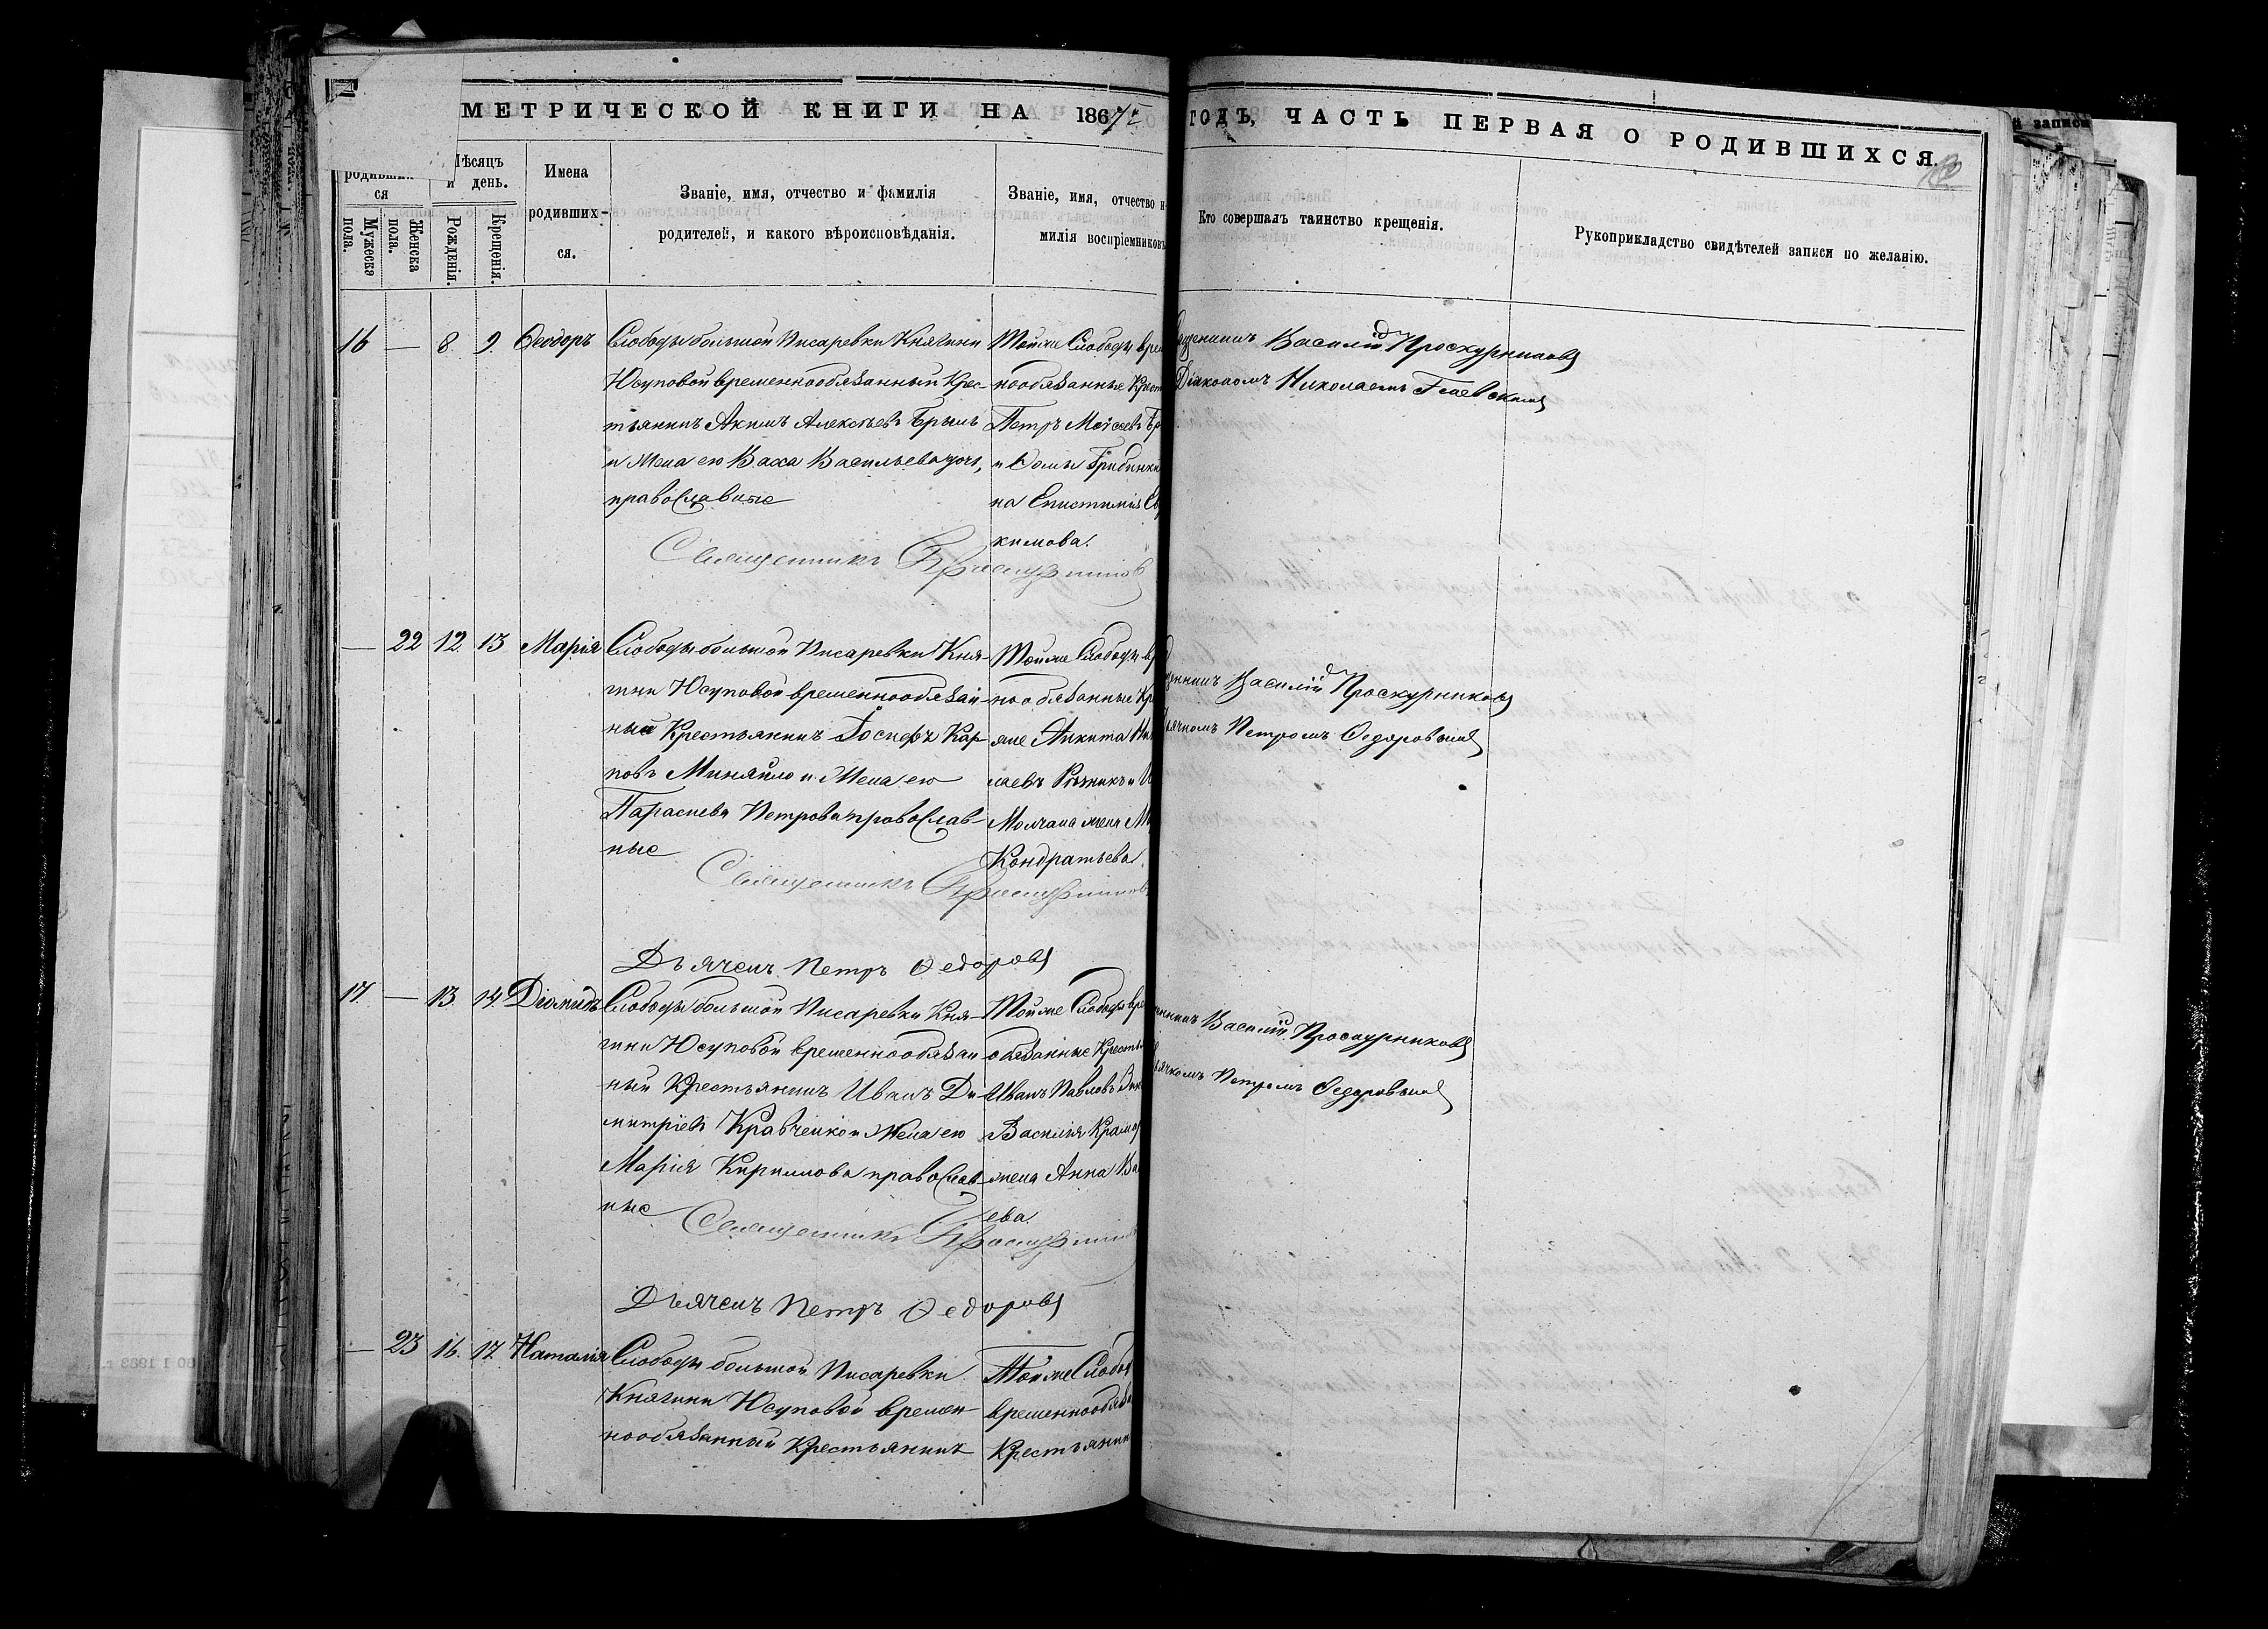 МЕТРИЧЕСКОЙ КНИГИ НА 1867й ГОДЪ, ЧАСТЬ ПЕРВАЯ О РОДИВШИХСЯ.
ся
Мужеска пола.
Женска пола.
Мѣсяцъ и день.
Рожденія.
Крещенія.
Имена родивших-ся.
Званіе, имя, отчество и фамилія
родителей, и какого вѣроисповѣданія.
Званіе, имя, отчество и
милія воспріемниковъ
Кто совершалъ таинство крещенія.
Рукоприкладство свидѣтелей записи по желанію.
16 — 8. 9. Ѳеодоръ
Слободы большой Писаревки Княгини
Юсуповой временнообязанный Крес-
тьянинъ Акимъ Алексѣевъ Брыль
и Жена его Васса Васильева
православные
Священникъ Проскурников
Тойже Слободы вре
нообязанные Крест
Петръ Моѵсеевъ
и Ѳомы
на Епистимія
кимова.
Василій Проскурниковъ
Діакономъ Николаемъ
— 22 12. 13 Марія
Слободы большой Писаревки Кня-
гини Юсуповой временнообязан-
ный Крестьянинъ Іосифъ Кар-
повъ Миняйло и Жена его
Параскева Петрова православ-
ные
Священникъ Проскурников
Тойже Слободы вр
нообязанные Кр
яне Никита Ни
лаевъ Рѣзникъ и
Молчана жена М
Кондратьева.
Василій Проскурниковъ
ячкомъ Петромъ Ѳедоровымъ
Дьячекъ Петръ Ѳедоровъ
17. — 13. 14. Діомидъ
Слободы большой Писаревки Кня-
гини Юсуповой временнообязан
ный Крестьянинъ Иванъ Ди-
митріевъ Кравченко и Жена его
Марія Кириллова православ-
ные
Священникъ Проскурников
Тойже Слободы вре
обязанные Кресть
Иванъ Павловъ
Василія Крама
жена Анна Ва
ева.
Василій Проскурниковъ
ячкомъ Петромъ Ѳедоровымъ
Дьячекъ Петръ Ѳедоровъ
— 23 16. 17. Наталія
Слободы большой Писаревки
Княгини Юсуповой времен-
нообязанный Крестьянинъ
Тойже Слобод
временнообяза
Крестьянин